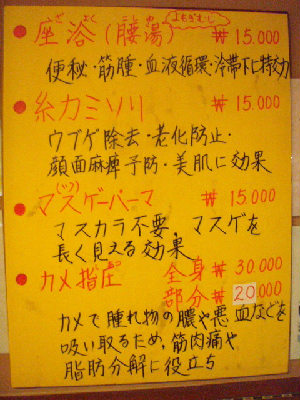 座浴(腰湯) よもぎむし ₩15.000
ざよく
便秘・筋腫・血液循環・冷帯下に特効
糸カミソリ ₩15.000
ウブゲ除去・老化防止・
顔面麻痺予防・美肌に効果
マスゲーパーマ ₩15.000
(ツ)
マスカラ不要、マスゲを
長く見える効果
カメ指圧 全身₩30.000
部分₩20.000
カメで腫れ物の膿や悪血などを
吸い取るため、筋肉痛や
脂肪分解に役立ち